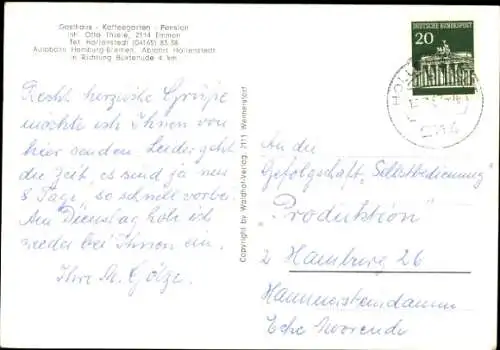 Gasthaus - Kaffeegarten - Pension
Inh. Otto Thiele, 2114 Emmen
Tel. Hollenstedt (04165) 83 38
Autobahn Hamburg-Bremen, Abfahrt Hollenstedt
in Richtung Buxtehude 4 km
Recht herzliche Grüße
möchte ich Ihnen von
hier senden. Leider geht
die Zeit, es sind ja nur
8 Tage, so schnell vorbei.
Am Dienstag hole ich
wieder bei Ihnen ein.
Ihre M. Gölze.
Copyright by Waldhof-Verlag, 2111 Weihnerstorf
DEUTSCHE BUNDESPOST
20
HOLL
2114
An die
Gefolgschaft „Selbstbedienung"
"Produktion"
2 Hamburg 26
Hammersteindamm
Ecke Moorende